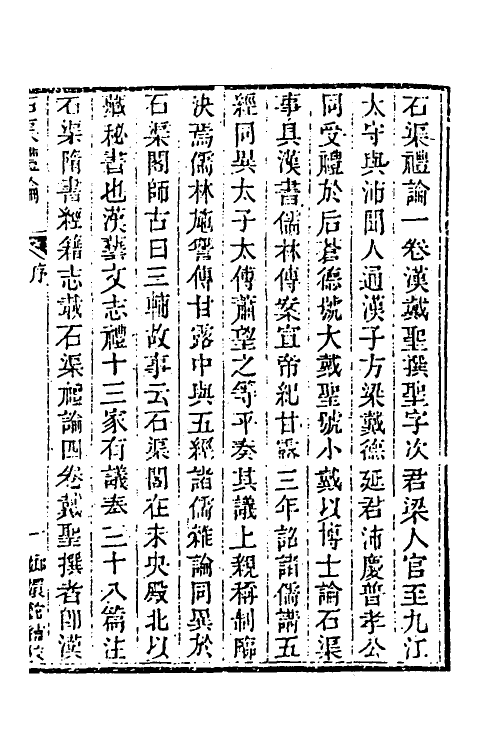 石渠禮論一卷漢戴聖撰聖字次君梁人官至九江
太守與沛聞人通漢子方梁戴德延君沛慶普孝公
同受禮於后蒼德號大戴聖號小戴以博士論石渠
事具漢書儒林傳案宣帝紀甘露三年詔諸儒講五
經同異太子太傅蕭望之等平奏其議上親稱制臨
決焉儒林施讐傳甘露中與五經諸儒雜論同異於
石渠閣師古曰三輔故事云石渠閣在未央殿北以
藏秘書也漢藝文志禮十三家有議奏三十八篇注
石渠隋書經籍志載石渠禮論四卷戴聖撰者卽漢
石渠禮論 序 一